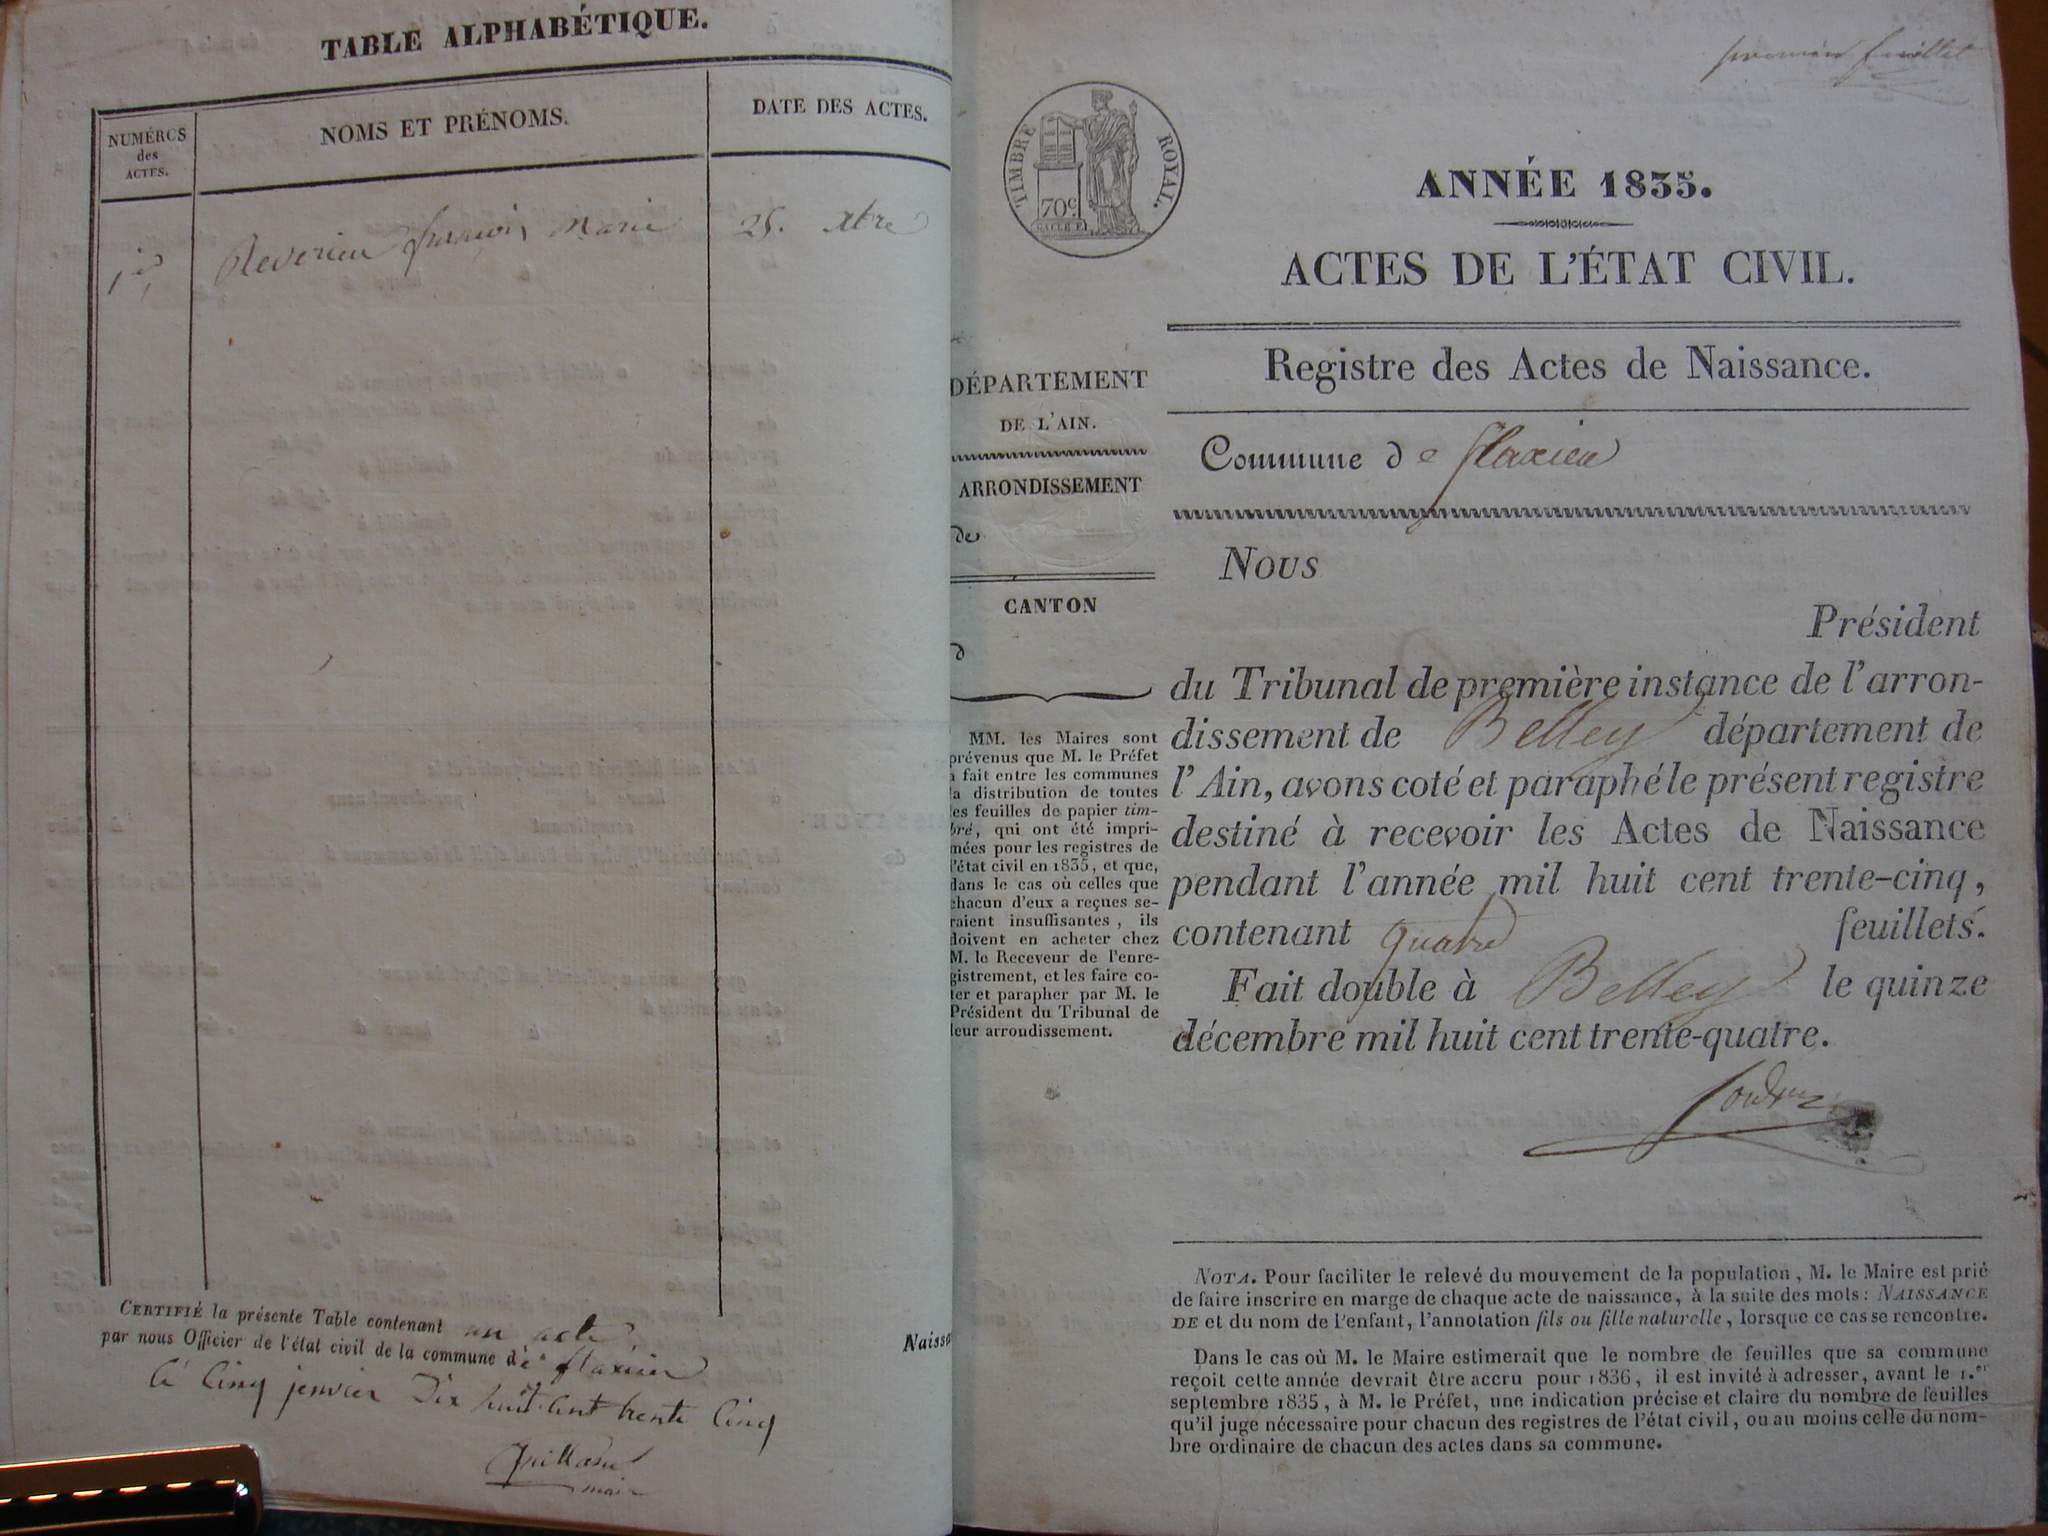 TABLE ALPHABÉTIQUE.
NUMÉROS
des
ACTES.
NOMS ET PRÉNOMS.
DATE DES ACTES.
Reverieu françois Marie 25. xbre
CERTIFIÉ la présente Table contenant un acte
par nous Officier de l'état civil de la commune de flaxieu
cinq janvier Dix huit cent trente Cinq
maire
Naissa
premier feuillet
TIMBRE ROYAL.
70c
ANNÉE 1835.
ACTES DE L'ÉTAT CIVIL.
Registre des Actes de Naissance.
DÉPARTEMENT
DE L'AIN.
ARRONDISSEMENT
de
CANTON
d
MM. les Maires sont
prévenus que M. le Préfet
a fait entre les communes
la distribution de toutes
les feuilles de papier tim-
bré, qui ont été impri-
mées pour les registres de
l'état civil en 1835, et que,
dans le cas où celles que
chacun d'eux a reçues se-
raient insuffisantes, ils
doivent en acheter chez
M. le Receveur de l'enre-
gistrement, et les faire co-
ter et parapher par M. le
Président du Tribunal de
leur arrondissement.
Commune de flaxieu
Nous
Président
du Tribunal de première instance de l'arron-
dissement de Belley département de
l'Ain, avons coté et paraphé le présent registre
destiné à recevoir les Actes de Naissance
pendant l'année mil huit cent trente-cinq,
contenant quatre feuillets.
Fait double à Belley le quinze
décembre mil huit cent trente-quatre.
NOTA. Pour faciliter le relevé du mouvement de la population, M. le Maire est prié
de faire inscrire en marge de chaque acte de naissance, à la suite des mots: NAISSANCE
DE et du nom de l'enfant, l'annotation fils ou fille naturelle, lorsque ce cas se rencontre.
Dans le cas où M. le Maire estimerait que le nombre de feuilles que sa commune
reçoit cette année devrait être accru pour 1836, il est invité à adresser, avant le 1.er
septembre 1835, à M. le Préfet, une indication précise et claire du nombre de feuilles
qu'il juge nécessaire pour chacun des registres de l'état civil, ou au moins celle du nom-
bre ordinaire de chacun des actes dans sa commune.